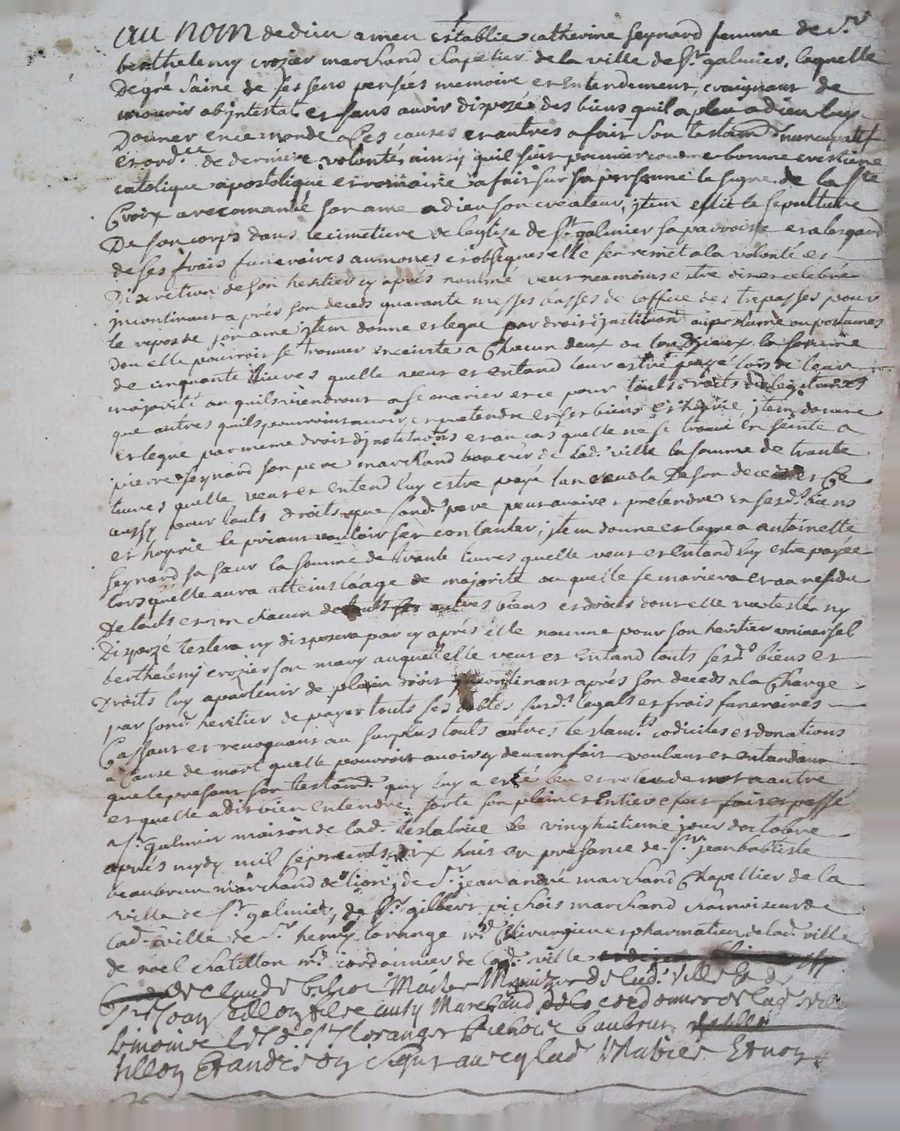 au nom de dieu amen establie catherine seynard femme de Sr
berthelemy crozier marchand chapelier de la ville de St galmier, laquelle
De gré saine de ses sens pensées memoire et entendement, craignant de
mourir abintestat et sans avoir disposé des biens quil a pleu a dieu luy
Donner en ce monde a ces causes et autres a fait son testamt nuncupatif
et ordce de derniere volonté ainsy quil suit premierement comme bonne crestiene
catolique apostolique et romaine a fait sur sa personne le signe de la Ste
Croix a recomandé son ame a dieu son createur, jtem eslit la sepulture
De son corps dans le cimetiere de leglise de St galmier sa parroisse et a legard
de ses frais funeraires aumones et obseques elle sen remet a la volonté et
Discretion de son heritier cy aprés nommé veut neamoins estre dit et celebré
jncontinant aprés son deceds quarante messes basses de loffice des trepasses pour
le repos de son ame jtem donne et legue par droit djnstitution au postume ou postumes
dont elle pourroit se trouver enceinte a chacun deux ou la somme
de cinquante livres quelle veut et entand leur estre payé lors de leur
majorité ou quils viendront a se marier et ce pour touts droits de legitimes
que autres quils pourroint avoir et pretendre en ses biens et hoprie jtem donne
et legue par meme droit djnstitution et au cas quelle ne se trouve enseinte a
pierre seynard son pere marchand de lad. ville la somme de trante
livres quelle veut et entend luy estre payé lan revolu De son deced et ce
aussy pour touts droits que sond. pere peut avoir et pretendre en sesd. biens
et hoprie le priant vouloir sen contanter, jtem donne et legue a antoinette
seynard sa sœur la somme de trante livres quelle veut et entand luy estre payée
lors quelle aura atteint laage de majorité ou quelle se mariera et au residu
De touts et un chacun de touts ses autres biens et droits dont elle na testé ny
Disposé testera ny disposera par cy aprés elle nomme pour son heritier universel
berthelemy crozier son mary auquel elle veut et entand touts sesd. biens et
Droits luy apartenir de plain droit jncontinant aprés son deceds a la Charge
par sond. heritier de payer touts ses debtes susd. legats et frais funeraires
Cassant et revoquant au surplus touts autres testamts codiciles et donations
a cause de mort quelle pourroit avoir cy devant fait voulant et entandant
que le presant son testamt quy luy a esté leu et releu de mot a autre
et quelle a dit bien entendre sorte son plein et Entier effet fait et passé
a St galmier maison de lad. testatrice le vinghuitieme jour doctobre
aprés mydy mil sept cents dix huit en presance de Sr jean baptiste
beaubrun marchand de lion, de Sr jean andré marchand Chapellier de la
ville de St galmier, de Sr gilbert pichois marchand chamoiseur de
lad. ville de Sr henry lorange md Chirurgien et pharmatien de lad. ville
de noel chatillon md cordonnier de lad. ville
de claude Maitre de lad. ville
Marchand cordonnier de lad. ville
lorange pichois baubrun
tillon et andre ont signé avec lad. Et non